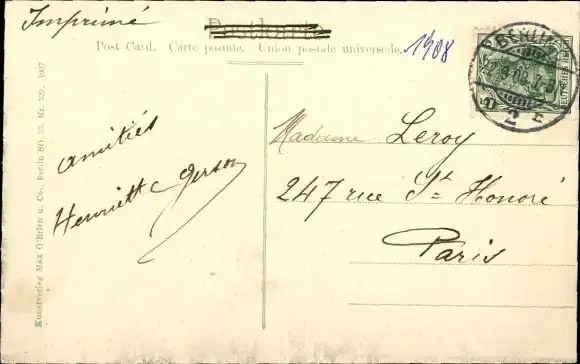 Imprimé
Postkarte
Post Card. Carte postale. Union postale universelle.
1908
Kunstverlag Max O'Brien u. Co., Berlin SO. 33. Nr. 229. 1907
amitiés
Henriette Gerson
Madame Leroy
247 rue St= Honoré
Paris
BERLIN
DEUTSCHES
2